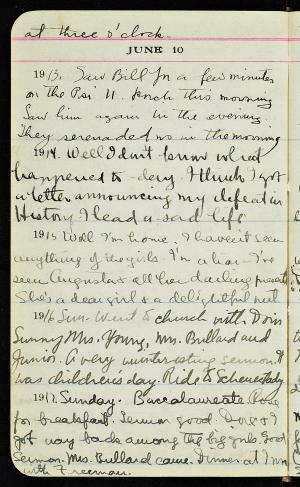 at three o'clock.
JUNE 10
1913. Saw Bill for a few minutes
on the Psi U. porch this morning
Saw him again in the evening.
They serenaded us in the morning
1914. Well I don't know what
happened to-day I think I got
a letter announcing my defeat in
History I lead a sad life
1915 Well I'm home. I haven't seen
anything of the girls. I'm a liar I've
seen Augusta & all her darling presents
She's a dear girl & a delightful
1916 Sun. Went to church with Doris
Sunny Mrs. Young, Mrs. Bullard and
Junior. A very uninteresting sermon. It
was children's day. Ride to Schenectady.
1917. Sunday. Baccalaureate Rose
for breakfast. Sermon good. Dot & I
got way back among the big girls. Good
Sermon. Mrs. Bullard came. Dinner at Inn
with Freeman.